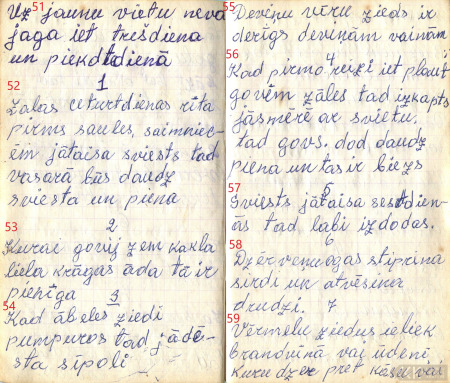 51
Uz jaunu vietu neva
jaga iet trešdiena
un piekdtdienā
52
1
Zaļas ceturtdienas rīta
pirms saules, saimniec-
ēm jātaisa sviests tad
vasarā būs daudz
sviesta un piena
53
2
Kurai govij zem kakla
liela krāgas āda tā ir
pienīga
54
3
Kad ābeles ziedi
pumpuros tad jādē-
sta sīpoli
55
Deviņu vīru zieds ir
derīgs deviņām vainām
56
4
Kad pirmo reizi iet plaut
govēm zāles tad izkapts
jāsmērē ar svietu.
tad govs. dod daudz
piena un tas ir biezs
57
5
Sviests jātaisa sestdien-
ās tad labi izdodas.
58
6
Dzērveņuogas stiprina
sirdi un atvēsina
drudzi.
59
7
Vērmeļu ziedus ieliek
brandvīnā vai ūdenī
Kuru dzer pret kāsu vai